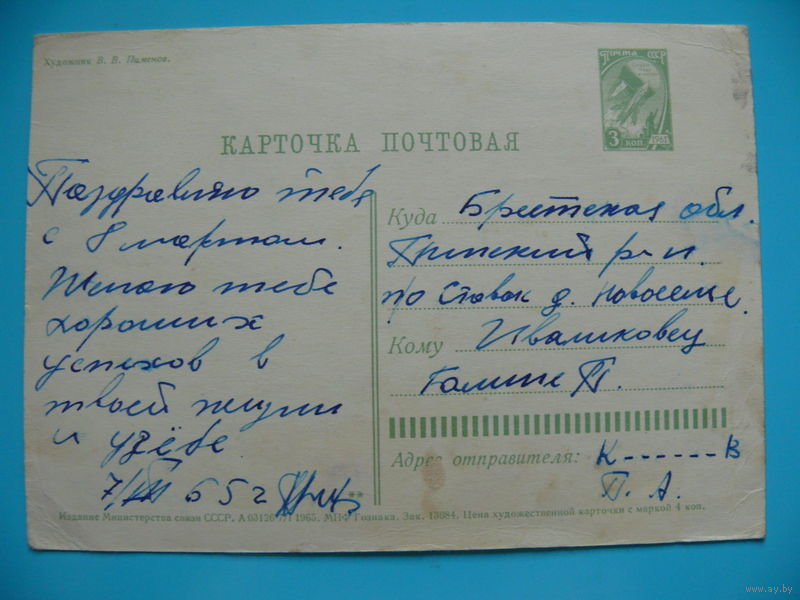 Художник В. В. Пименов.
Почта СССР
3 коп
1961
КАРТОЧКА ПОЧТОВАЯ
Поздравляю тебя
с 8 мартом.
Желаю тебе
хороших
успехов в
твоей жизни
и учёбе.
7/III 65 г
Куда Брестская обл.
Пинский р-н.
п/о Ставок д. Новоселье
Кому Ивашковец
Галине П.
Адрес отправителя: К------В
П. А.
Издание Министерства связи СССР. А 03126 1965. МПФ Гознака. Зак. 13084. Цена художественной карточки с маркой 4 коп.
www.ay.by